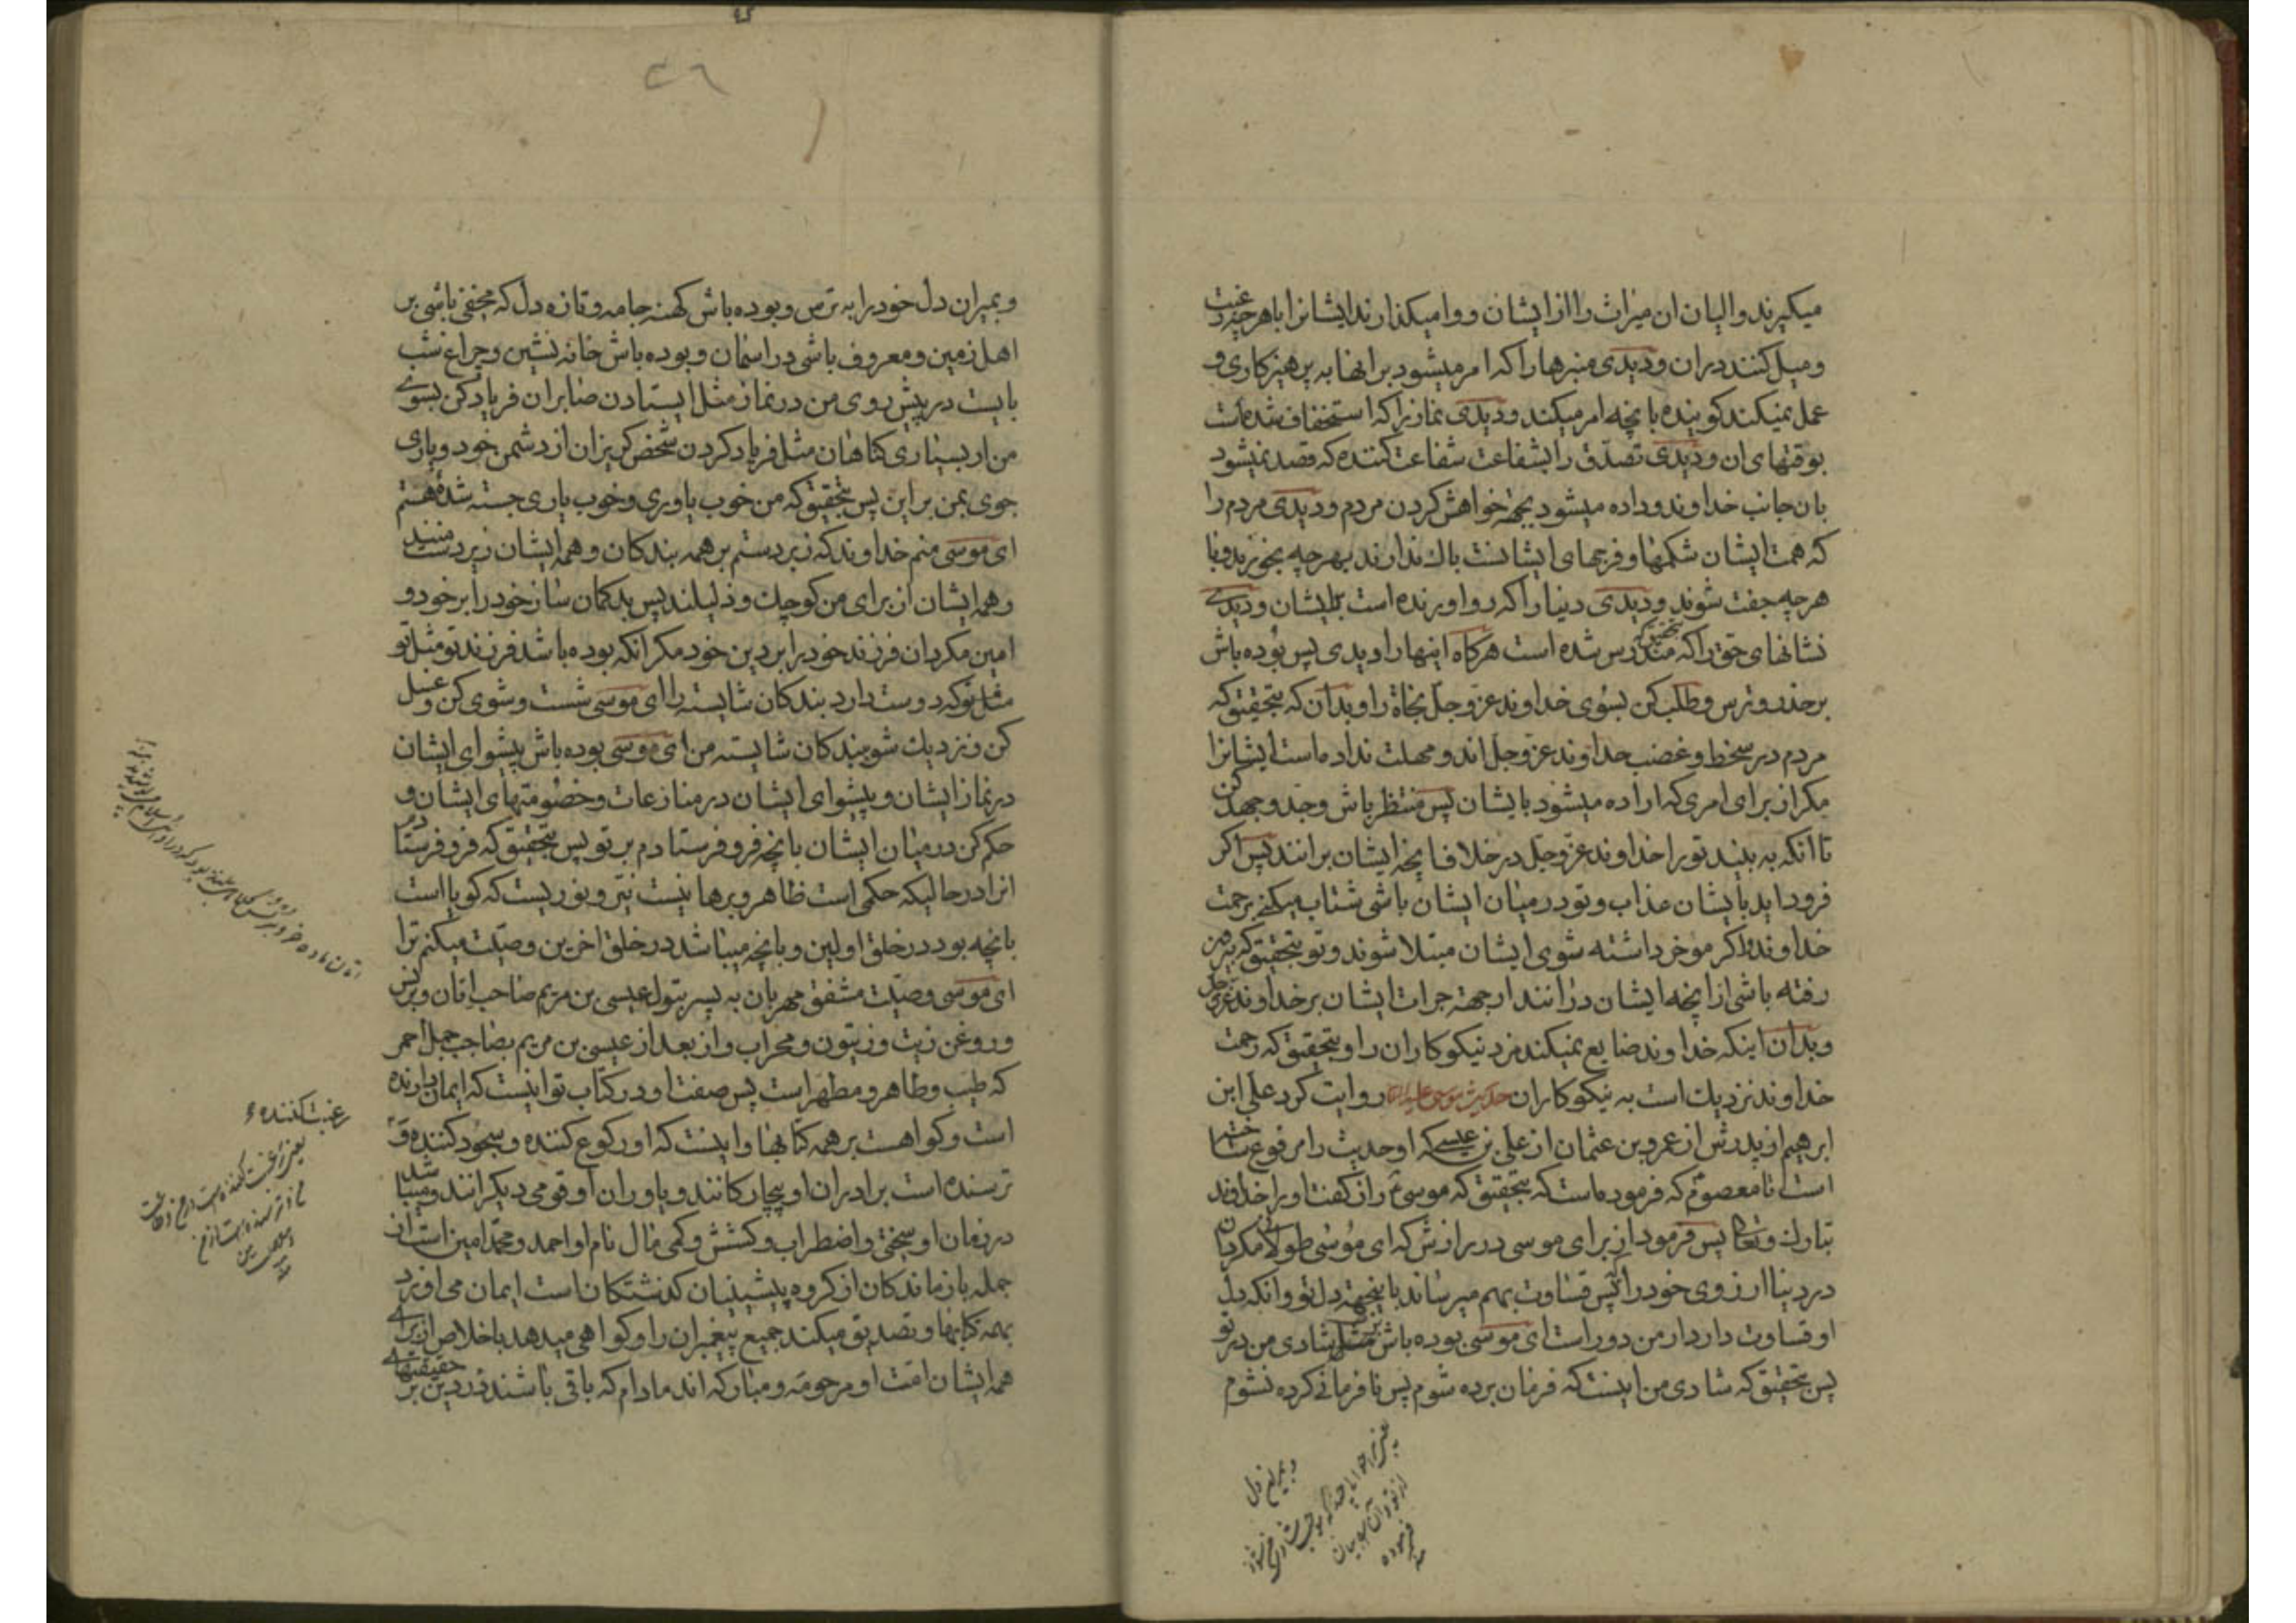 میکیرند والیان ان میراث را از ایشان و وامیکذارند ایشانرا باهرچه رغبت
ومیل کنند دران ودیدی منبرها را که امر میشود بر انها به پرهیزکاری و
عمل نمیکند کوینده بانچه امر میکند ودیدی نماز را که استخفاف شده است
بوقتهای ان ودیدی تصدّق را بشفاعت شفاعت کننده که قصد نمیشود
بان جانب خداوند وداده میشود بجهة خواهش کردن مردم ودیدی مردم را
که همت ایشان شکمها وفرجهای ایشانست باك ندارند بهرچه بخورند وبا
هرچه جفت شوند ودیدی دنیا را که رو اورنده است بایشان ودیدی
نشانهای حق را که مندرس شده است هرکاه اینها را دیدی پس بوده باش
برحذر وترس وطلب کن بسوی خداوند عزوجل نجاة را وبدان که بتحقیق که
مردم در سخط وغضب خداوند عزوجل اند ومهلت نداده است ایشانرا
مکر از برای امری که اراده میشود بایشان پس منتظر باش وجد وجهد کن
تا انکه به بیند تو را خداوند عزوجل در خلاف انچه ایشان برانند پس اکر
فرود اید بایشان عذاب وتو در میان ایشان باشی شتاب میکنی برحمت
خداوند واکر موخر داشته شوی ایشان مبتلا شوند وتو بتحقیق که بیرون
رفته باشی از انچه ایشان درانند از جهة جرات ایشان بر خداوند عزوجل
وبدان اینکه خداوند ضایع نمیکند مزد نیکوکاران را وبتحقیق که رحمت
خداوند نزدیك است به نیکوکاران حدیث موسی علیه السلام روایت کرد علی ابن
ابرهیم از پدرش از عمروبن عثمان از علی بن عیسی که او حدیث را مرفوع ساخته
است تا معصوم که فرموده است که بتحقیق که موسی ع راز کفت اورا خداوند
تبارك وتعالی پس فرمود از برای موسی در رازش که ای موسی طولانی مکردان
در دنیا ارزوی خود را پس قساوت بهم میرساند باینجهة دل تو وانکه دل
او قساوت دارد از من دور است ای موسی بوده باش مثل شادی من در تو
پس بتحقیق که شادی من اینست که فرمان برده شوم پس نافرمانی کرده نشوم
وبمیران دل خود را به ترس وبوده باش کهنه جامه وتازه دل که مخفی باشی بر
اهل زمین ومعروف باشی در اسمان وبوده باش خانه نشین وچراغ شب
بایست در پیش روی من در نماز مثل ایستادن صابران فریاد کن بسوی
من از بسیاری کناهان مثل فریاد کردن شخص کریزان از دشمن خود ویاری
جوی بمن بر این پس بتحقیق که من خوب یاوری وخوب یاری جسته شده هستم
ای موسی منم خداوند که زبردستم بر همه بندکان وهمه ایشان زیردست منند
وهمه ایشان از برای من کوچك وذلیلند پس بدکمان ساز خود را بر خود و
امین مکردان فرزند خود را بر دین خود مکر انکه بوده باشد فرزند تو مثل تو
مثل تو که دوست دارد بندکان شایسته را ای موسی شست وشوی کن وغسل
کن ونزدیك شو ببندکان شایسته من ای موسی بوده باش پیشوای ایشان
در نماز ایشان وپیشوای ایشان در منازعات وخصومتهای ایشان و
حکم کن در میان ایشان بانچه فرو فرستادم بر تو پس بتحقیق که فرو فرستادم
انرا در حالیکه حکمی است ظاهر وبرهانیست نیّر ونوریست که کویا است
بانچه بود در خلق اولین وبانچه میباشد در خلق اخرین وصیّت میکنم ترا
ای موسی وصیّت مشفق مهربان به پسر بتول عیسی بن مریم صاحب اتان وبرنس
وروغن زیت وزیتون ومحراب واز بعد از عیسی بن مریم بصاحب جمل احمر
که طیب وطاهر ومطهر است پس صفت او در کتاب تو اینست که ایمان دارنده
است وکواهست بر همه کتابها واینست که او رکوع کننده وسجود کننده و
ترسنده است برادران او بیچارکانند ویاوران او قومی دیکرانند ومیباشد
در زمان او سختی واضطراب وکشش وکمی مال نام او احمد ومحمد امین است از
جمله بازماندکان از کروه پیشینیان کذشتکان است ایمان می اورد
بهمه کتابها وتصدیق میکند جمیع پیغمبران را وکواهی میدهد باخلاص از برای
همه ایشان امت او مرحومه ومبارکه اند مادام که باقی باشند در دین بر حقیقتهای
رغبت کننده